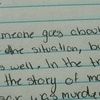 meone goes about
the situation, bu
s well. In the t
the story of ma
was murde